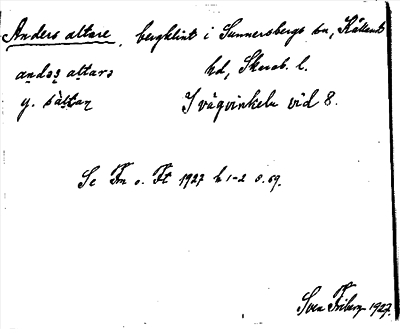 Anders altare, bergklint i Sunnersbergs sn, Kållands
andas altara hd, Skarab. l.
y. sättar I vägvinkeln vid 8.
Se Fm o. Ft 1927 h 1-2 s. 69.
Sven Friberg 1927.